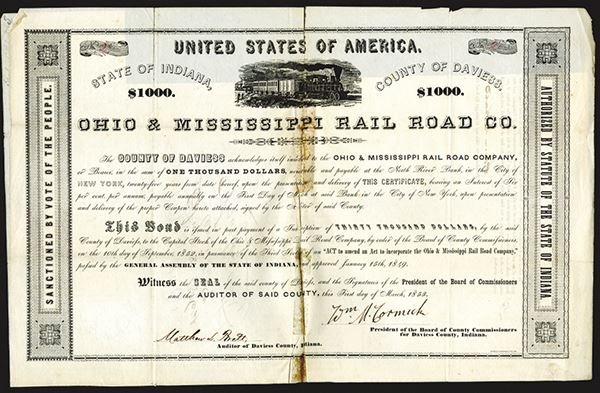 UNITED STATES OF AMERICA.
STATE OF INDIANA,
COUNTY OF DAVIESS.
$1000.
$1000.
OHIO & MISSISSIPPI RAIL ROAD CO.
The COUNTY OF DAVIESS acknowledges itself indebted to the OHIO & MISSISSIPPI RAIL ROAD COMPANY,
or Bearer, in the sum of ONE THOUSAND DOLLARS, and payable at the North River Bank, in the City of
NEW YORK, twenty-five years from date hereof, upon the presentation and delivery of THIS CERTIFICATE, bearing an Interest of Six
per cent. per annum, payable annually on the First Day of March at said Bank in the City of New York, upon presentation
and delivery of the proper Coupon hereto attached, signed by the Auditor of said County.
This Bond is issued in part payment of a Subscription of THIRTY THOUSAND DOLLARS, by the said
County of Daviess, to the Capital Stock of the Ohio & Mississippi Rail Road Company, by order of the Board of County Commissioners,
on the 10th day of September, in pursuance of the Third Section of an "ACT to amend an Act to incorporate the Ohio & Mississippi Rail Road Company,"
passed by the GENERAL ASSEMBLY OF THE STATE OF INDIANA, and approved January 15th, 1849.
Witness the SEAL of the said county of Daviess, and the Signatures of the President of the Board of Commissioners
and the AUDITOR OF SAID COUNTY, this First day of March,
Wm. McCormick
President of the Board of County Commissioners
for Daviess County, Indiana.
Matthew L.
Auditor of Daviess County, Indiana.
SANCTIONED BY VOTE OF THE PEOPLE.
AUTHORIZED BY STATUTE OF THE STATE OF INDIANA